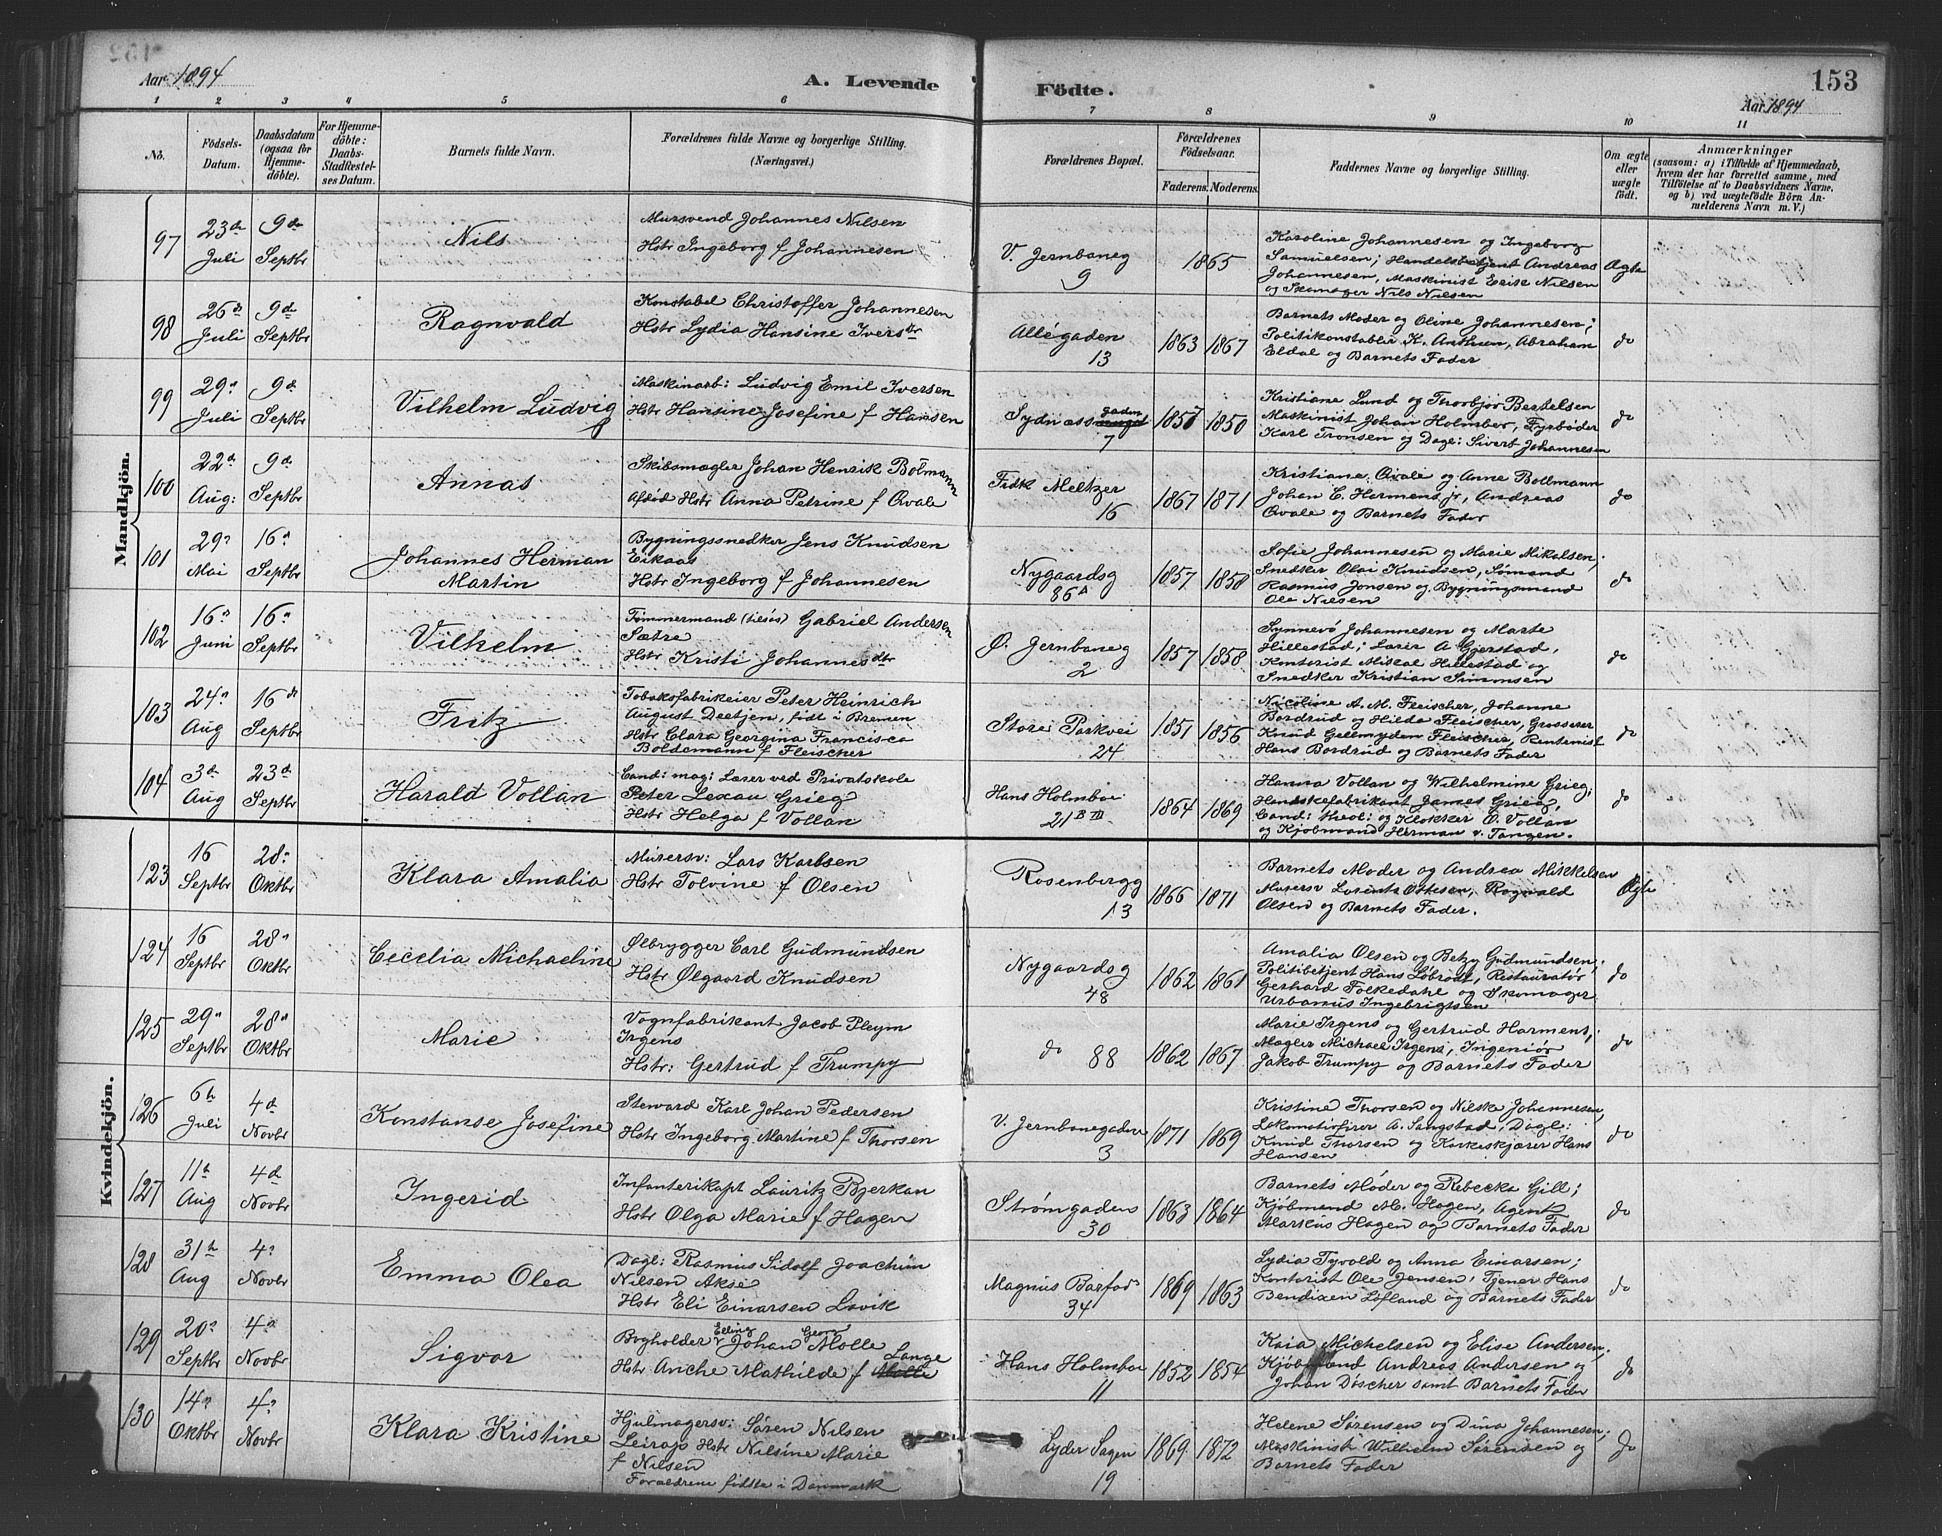 Aar 1894
A. Levende
Födte.
153
Aar 1894
1 2 3 4 5 6 7 8 9 10 11
No.
Födsels-
Datum.
Daabsdatum
(ogsaa for
Hjemme-
döbte).
For Hjemme-
döbte:
Daabs-
Stadfæstel-
ses Datum.
Barnets fulde Navn.
Forældrenes fulde Navne og borgerlige Stilling.
(Næringsvei.)
Forældrenes Bopæl.
Forældrenes
Födselsaar.
Faderens. Moderens.
Faddernes Navne og borgerlige Stilling.
Om ægte
eller
uægte
födt.
Anmærkninger
(saasom: a) i Tilfælde af Hjemmedaab,
hvem der har forrettet samme, med
Tilföielse af to Daabsvidners Navne.
og b) ved uægtefödte Börn An-
melderens Navn m.V.)
Mandkjön.
97
23de
Juli
9de
Septbr
Nils
Mursvend Johannes Nilsen
Hstr Ingeborg f Johannesen
V. Jernbaneg
9
1865
Karoline Johannesen og Ingeborg
Samuelsen; Handelsbetjent Andreas
Johannesen, Maskinist Erik Nilsen
og Skomager Nils Nilsen
Ægte
98
26d
Juli
9de
Septbr
Ragnvald
Konstabel Christoffer Johannesen
Hstr Lydia Hansine Iversdtr
Allégaden
13
1863 1867
Barnets Moder og Oline Johannesen;
Politikonstabler K. Anthun, Abraham
Eldal og Barnets Fader
do
99
29d
Juli
9d
Septbr
Vilhelm Ludvig
Maskinarb: Ludvig Emil Iversen
Hstr Hansine Josefine f Hansen
Sydnæssgaden
7
1857 1850
Kristiane Lund og Thorbjør Bertelsen
Maskinist Johan Holmber, Fyrbøder
Karl Tronsen og Dagl: Sivert Johannesen
do
100
22d
Aug:
9d
Septbr
Annas
Skibsmægler Johan Henrik Bölmann
Afdöd Hstr Anna Petrine f Qvale
Fr̲dk Meltzer
16
1867 1871
Kristiane Qvale og Anne Bollmann
Johan C. Hermens jr, Andreas
Qvale og Barnets Fader
do
101
29d
Mai
16d
Septbr
Johannes Herman
Martin
Bygningssnedker Jens Knudsen
Eikaas
Hstr Ingeborg f Johannesen
Nygaardsg
86A
1857 1858
Sofie Johannesen og Marie Mikalsen;
Snedker Olai Knudsen, Sømand
Rasmus Jonsen og Bygningsmand
Ole Nilsen
do
102
16d
Juni
16d
Septbr
Vilhelm
Tømmermand (tilsøs) Gabriel Andersen
Sætre
Hstr Kristi Johannesdtr
Ø. Jernbaneg
2
1857 1858
Synnevö Johannesen og Marte
Hillestad; Lærer A Gjerstad,
Kontorist Mikal Hillestad og
Snedker Kristian Simonsen
do
103
24d
Aug
16de
Septbr
Fritz
Tobaksfabrikeier Peter Heinrich
August Deetjen, födt i Bremen
Hstr Clara Georgina Francisca
Boldemann f Fleischer
Store Parkvei
24
1851 1856
Nicoline A. M. Fleischer, Johanne
Bordrud og Hilda Fleischer, Grosserer
Knud Gelmuyden Fleischer, Rentenist
Hans Bordrud og Barnets Fader
do
104
3de
Aug
23d
Septbr
Harald Vollan
Cand: mag: Læser ved Privatskole
Peter Lexau Grieg
Hstr Helga f Vollan
Hans Holmboe
21B III
1864 1869
Hanna Vollan og Wilhelmine Grieg;
Handskefabrikant James Grieg,
Cand: theol: og Klokker O. Vollan
og Kjöbmand Herman v. Tangen.
do
Kvindekjön.
123
16
Septbr
28d
Oktbr
Klara Amalia
Murersv: Lars Karlsen
Hstr Tolvine f Olsen
Rosenbergg
13
1866 1871
Barnets Moder og Andrea Mikkelsen
Murersv Lorentz Ottesen, Ragvald
Olsen og Barnets Fader.
Ægte
124
16
Septbr
28d
Oktbr
Cecelia Michaeline
Ølbrygger Carl Gudmundsen
Hstr Ølgaard Knudsen
Nygaardsg
48
1862 1861
Amalia Olsen og Betzy Gudmundsen;
Politibetjent Hans Löbrodt, Restauratør
Gerhard Folkedahl og Skomager
Urbanus Ingebrigtsen
do
125
29d
Septbr
28d
Oktbr
Marie
Vognfabrikant Jacob Pleym
Irgens
Hstr: Gertrud f Trumpy
do 88
1862 1867
Marie Irgens og Gertrud Harmens;
Mægler Michael Irgens, Ingeniör
Jakob Trumpy og Barnets Fader
do
126
6te
Juli
4d
Novbr
Konstanse Josefine
Steward Karl Johan Pedersen
Hstr Ingeborg Martine f Thorsen
V. Jernbanegaden
3
1871 1869
Kristine Thorsen og Nilske Johannesen,
Lokomotivfirer A. Sangstad, Dagl:
Knud Thorsen og Karkiskjører Hans
Hansen
do
127
11d
Aug
4d
Novbr
Ingerid
Infanterikapt Lauritz Bjerkan
Hstr Olga Marie f Hagen
Strømgaden
30
1863 1864
Barnets Moder og Rebecka Gill;
Kjøbmand M. Hagen, Agent
Markus Hagen og Barnets Fader
do
128
31te
Aug
4d
Novbr
Emma Olea
Dagl: Rasmus Sidolf Joachim
Nilsen Akse
Hstr Eli Einarsen Lavik
Magnus Barfods
34
1869 1863
Lydia Tyvold og Anna Einarsen;
Kontorist Ole Jensen, Tjener Hans
Bendixen Lofland og Barnets Fader
do
129
20d
Septbr
4d
Novbr
Sigvor
Bogholder Elling Johan Georg Molle
Hstr Anche Mathilde f Lange
Hans Holmboe
11
1852 1854
Kaia Michelsen og Elise Andersen,
Kjøbmand Andreas Andersen og
Johan Döscher samt Barnets Fader
do
130
14d
Oktbr
4d
Novbr
Klara Kristine
Hjulmagersv: Søren Nilsen
Leirap Hstr Nilsine Marie
f Nilsen
Forældrene födte i Danmark
Lyder Sagen
19
1869 1872
Helene Sørensen og Dina Johannesen,
Maskinist Wilhelm Sørensen og
Barnets Fader
do